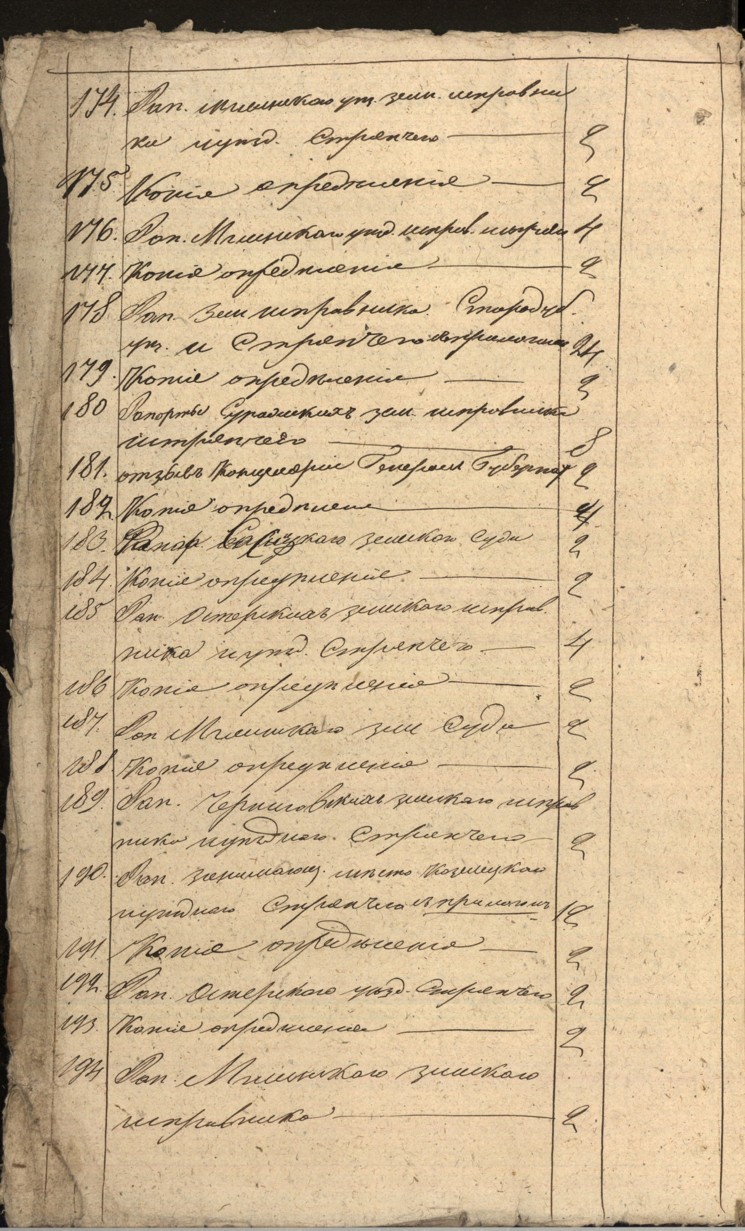 174. Рап. Мглинскаго уѣ. зем. исправни
ка и уѣзд. Стряпчего 2
175 Копія опредѣленія 2
176. Рап. Мглинскаго уѣзд. исправ. 4
177. Копія опредѣленія 2
178 Рап. Зем исправника Стародуб.
уѣз. и Стряпчего съ приложені 24
179. Копія опредѣленія 2
180 Рапорты Суражскихъ зем. исправника
и стряпчего 8
181. отзывъ Канцеляріи Генерал Губернат 2
182 Копія опредѣлені 4
183. Рапор. земскаго Суда 2
184. Копія опредѣленія. 2
185 Рап. Остерскихъ земскаго исправ.
ника и уѣзд. Стряпчего 4
186 Копія опредѣленія 2
187. Рап Мглинскаго зем Суда 2
188 Копія опредѣленія 2
189. Рап. Черниговскихъ земскаго исправ
ника и уѣзднаго. Стряпчего 2
190. Рап. занимающ. мѣсто Козелецкаго
уѣзднаго Стряпчего съ приложен. 12
191 Копія опредѣленія 2
192. Рап. Остерскаго уѣзд. Стряпчего 2
193 Копія опредѣленія 2
194 Рап. Мглинскаго земскаго
исправника 2